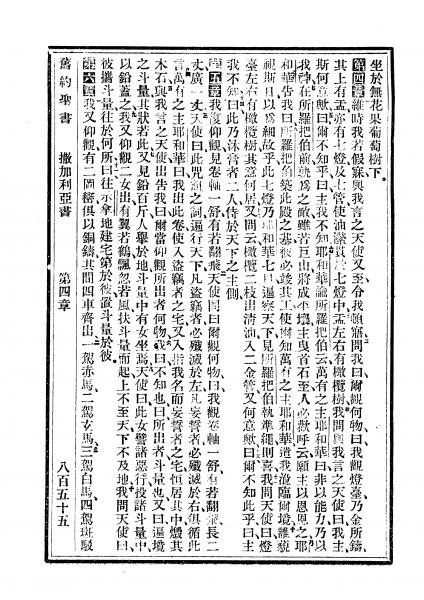 坐於無花果葡萄樹下。
第四章 維時我若假寐與我言之天使又至令我頓寤問我曰爾觀何物曰我觀燈臺乃金所鑄
其上有盂亦有七燈及七管使油灤貫於七燈中盂左右有橄欖樹我問與我言之天使曰我主
斯何意歟曰爾不知乎曰主我不知耶和華諭所羅把伯云萬有之主耶和華曰非以能力乃以
我神在所羅把伯前孰爲之敵雖若巨山將成平壤主曳首石至人必歡呼云願主以恩恩之耶
和華告我曰所羅把伯築此殿之基彼必竣其工使爾知萬有之主耶和華遣我涖臨爾境誰藐
視斯日以爲細故乎此七燈乃耶和華七目遍察天下見所羅把伯執準繩則喜我問天使曰燈
臺左右有橄欖樹其意何居又問曰橄欖二枝出清油入二金管又何意歟曰爾不知此乎曰主
我不知曰此乃沐膏者二人侍於天下之主側
第五章 我復仰觀見卷軸一舒有若翻飛天使問曰爾觀何物曰我觀卷軸一舒有若翻飛長二
丈廣一丈天使曰此咒詛之詞遍行天下凡盜竊者必殲滅於左凡妄誓者必殲滅於右俱循此
言萬有之主耶和華曰我出此卷使入盜竊者之宅又入指我名而妄誓者之宅恒居其中燬其
木石與我言之天使出告我曰爾當仰觀所出者何物我曰不知也曰所出者斗量也又曰遍境
之斗量其狀若此又見鉛百斤人舉於地斗量中有女坐焉天使曰此女譬諸惡行投諸斗量中
以鉛蓋之我又仰觀二女出有翼若鶴飄忽若風扶斗量而起上不至天下不及地我問天使曰
彼攜斗量往於何所曰往示拿地建宅第於彼置斗量於彼
第六章 我又仰觀有二岡巒俱以銅鑄其間四車齊出一駕赤馬二駕玄馬三駕白馬四駕斑駁
舊約聖書 撒加利亞書 第四章 八百五十五